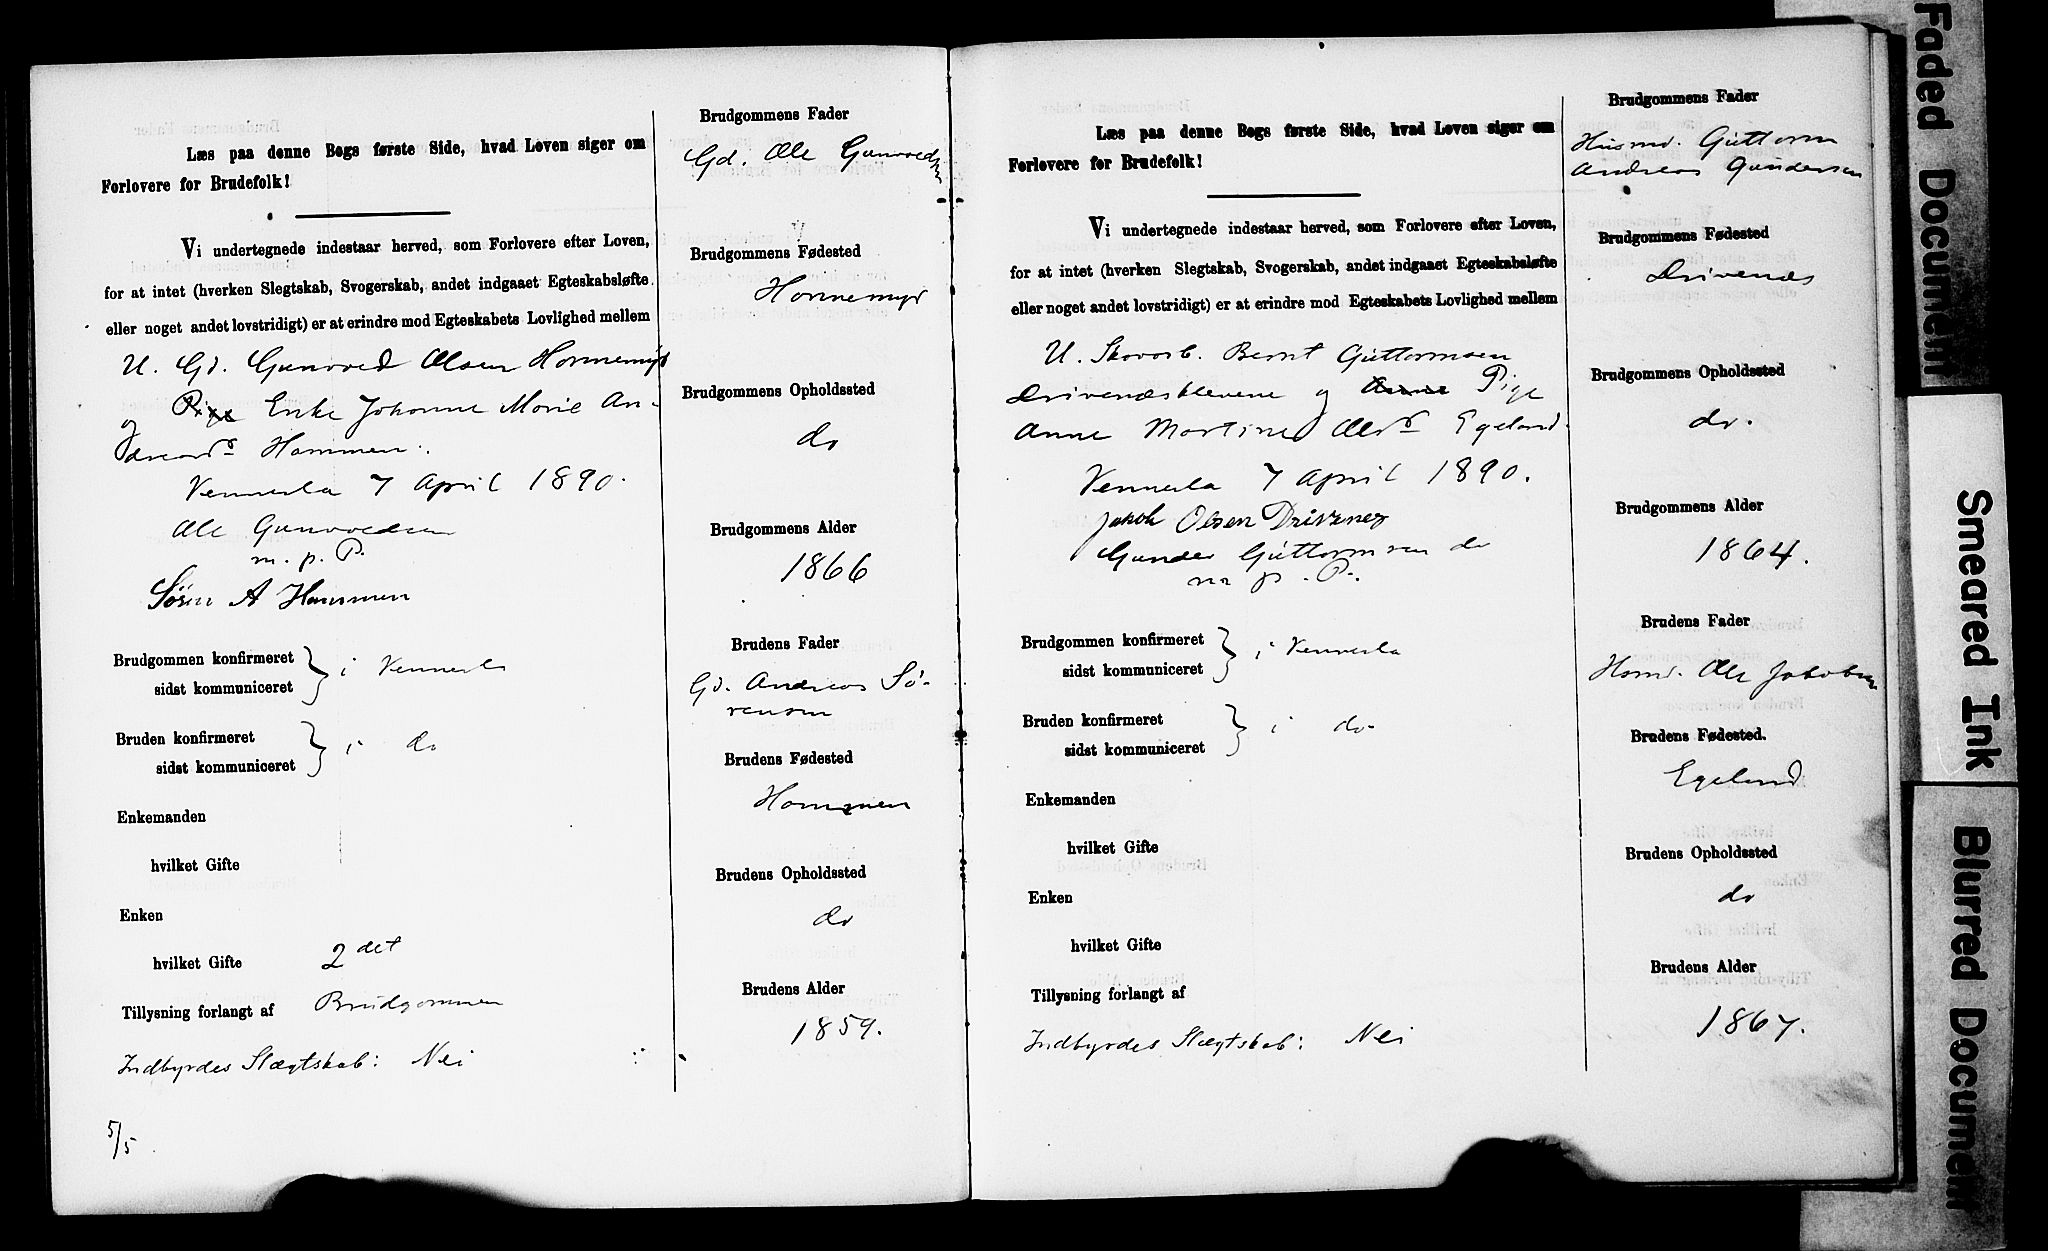 Læs paa denne Bogs første Side, hvad Loven siger om
Forlovere for Brudefolk!
Vi undertegnede indestaar herved, som Forlovere efter Loven,
for at intet (hverken Slegtskab, Svogerskab, andet indgaaet Egteskabsløfte
eller noget andet lovstridigt) er at erindre mod Egteskabets Lovlighed mellem
U. Gd. Gunvved Olsen Honnemyr
og Pige Enke Johanne Marie An-
dreasds Hommen.
Vennesla 7 April 1890.
Ole Gunvvedsen
m. p. P.
Søren A Hommen
Brudgommen konfirmeret
sidst kommuniceret } i Vennesla
Bruden konfirmeret
sidst kommuniceret } i do
Enkemanden
hvilket Gifte
Enken
hvilket Gifte 2det
Tillysning forlangt af Brudgommen
Indbyrdes Slægtskab: Nei
5/5
Brudgommens Fader
Gd. Ole Gunvvedsen
Brudgommens Fødested
Honnemyr
Brudgommens Opholdssted
do
Brudgommens Alder
1866
Brudens Fader
Gd. Andreas Sø-
rensen
Brudens Fødested
Hommen
Brudens Opholdssted
do
Brudens Alder
1859.
Læs paa denne Bogs første Side, hvad Loven siger om
Forlovere for Brudefolk!
Vi undertegnede indestaar herved, som Forlovere efter Loven,
for at intet (hverken Slegtskab, Svogerskab, andet indgaaet Egteskabsløfte
eller noget andet lovstridigt) er at erindre mod Egteskabets Lovlighed mellem
U. Skovarb. Bernt Guttormsen
Drivenesklevene og Anne Pige
Anne Martine Olsd Egeland.
Vennesla 7 April 1890.
Jakob Olsen Drivenes
Gunder Guttormsen do
m p. P.
Brudgommen konfirmeret
sidst kommuniceret } i Vennesla
Bruden konfirmeret
sidst kommuniceret } i do
Enkemanden
hvilket Gifte
Enken
hvilket Gifte
Tillysning forlangt af
Indbyrdes Slægtskab: Nei
Brudgommens Fader
Husmd. Guttorm
Andreas Gundersen
Brudgommens Fødested
Drivenes
Brudgommens Opholdssted
do.
Brudgommens Alder
1864.
Brudens Fader
Ole Jakobsen
Brudens Fødested.
Egeland
Brudens Opholdssted
do
Brudens Alder
1867.
Faded Document
Smeared Ink
Blurred Document